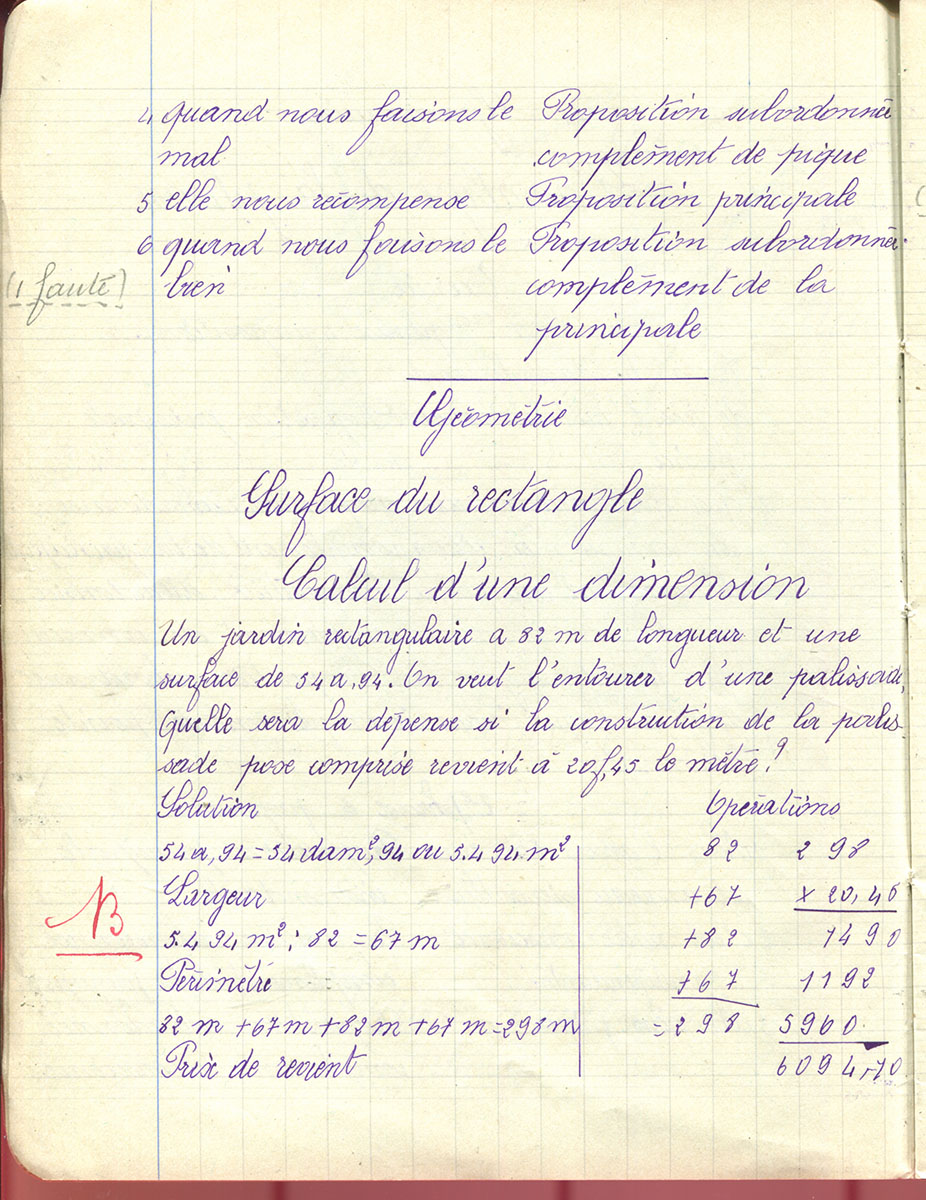 4 quand nous faisons le Proposition subordonnée
mal complément de pique
5 elle nous récompense Proposition principale
6 quand nous faisons le Proposition subordonnée
(1 faute) bien complément de la
principale
Géométrie
Surface du rectangle
Calcul d'une dimension
Un jardin rectangulaire a 82 m de longueur et une
surface de 54a,94. On veut l'entourer d'une palissade,
Quelle sera la dépense si la construction de la palis
sade pose comprise revient à 20f,45 le mètre?
Solution Opérations
54a,94 = 54dam²,94 ou 5.494.m² 82 298
Largeur +67 × 20,45
B 5.494m² : 82 = 67m +82 1490
Périmètre +67 1192
82m + 67m + 82m + 67m = 298m = 298 5960.
Prix de revient 6094,10